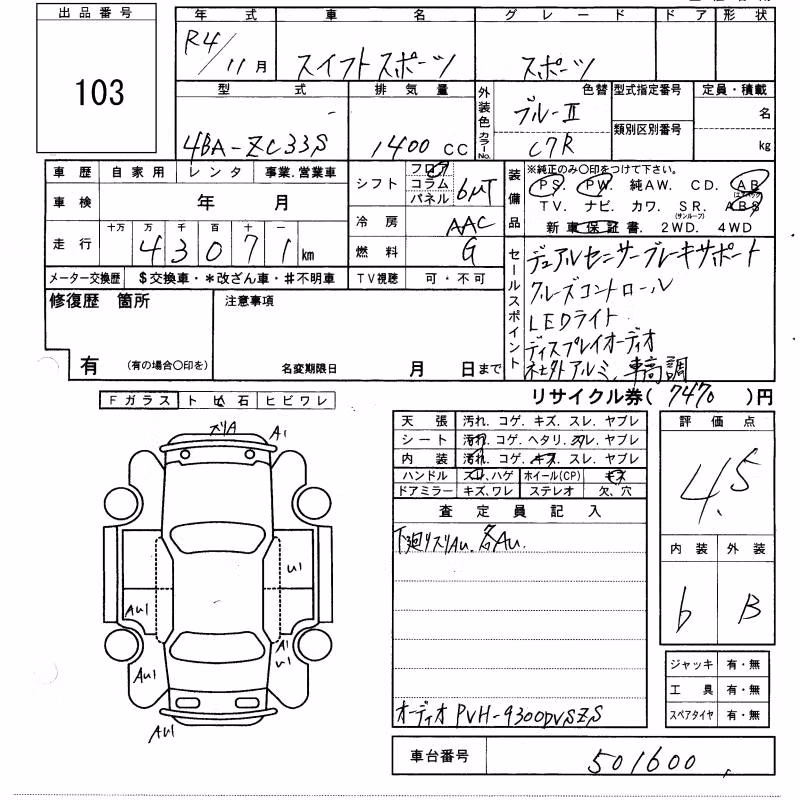 出品番号
103
年 式 車 名 グ レ ー ド ド ア 形 状
R4/11月 スイフトスポーツ スポーツ
型 式 排 気 量 外装色 カラーNo. 色替 型式指定番号 定員・積載
4BA-ZC33S 1400 CC ブルーII 名
類別区別番号
C7R kg
車 歴 自 家 用 レ ン タ 事業.営業車
車 検 年 月
シフト フロア コラム パネル 6MT
装備品 ※純正のみ○印をつけて下さい。
PS. PW. 純AW. CD. AB(エアバック)
TV. ナビ. カワ. SR.(サンルーフ) ABS
新 車 保 証 書. 2WD. 4WD
走 行 十万 万 千 百 十 一
43071km
冷 房 AAC
燃 料 G
メーター交換歴 $交換車・*改ざん車・#不明車 TV視聴 可・不可
セールスポイント
デュアルセンサーブレーキサポート
クルーズコントロール
LEDライト
ディスプレイオーディオ
社外アルミ、車高調
修復歴 箇所 注意事項
有 (有の場合○印を) 名変期限日 月 日まで
リサイクル券( 7470 )円
Fガラス ト ビ 石 ヒビワレ
ズリA A1
U1
AU1
A1
U1
AU1
AU1
天 張 汚れ. コゲ. キズ. スレ. ヤブレ
シート 汚れ. コゲ. ヘタリ. スレ. ヤブレ
内 装 汚れ. コゲ. キズ. スレ. ヤブレ
ハンドル スレ.ハゲ ホイール(CP) キズ
ドアミラー キズ.ワレ ステレオ 欠、穴
評 価 点
4.5
査 定 員 記 入
下廻りズリAU. 各AU.
内 装 外 装
b B
ジャッキ 有・無
工 具 有・無
スペアタイヤ 有・無
オーディオ PVH-9300DVSZS
車台番号 501600